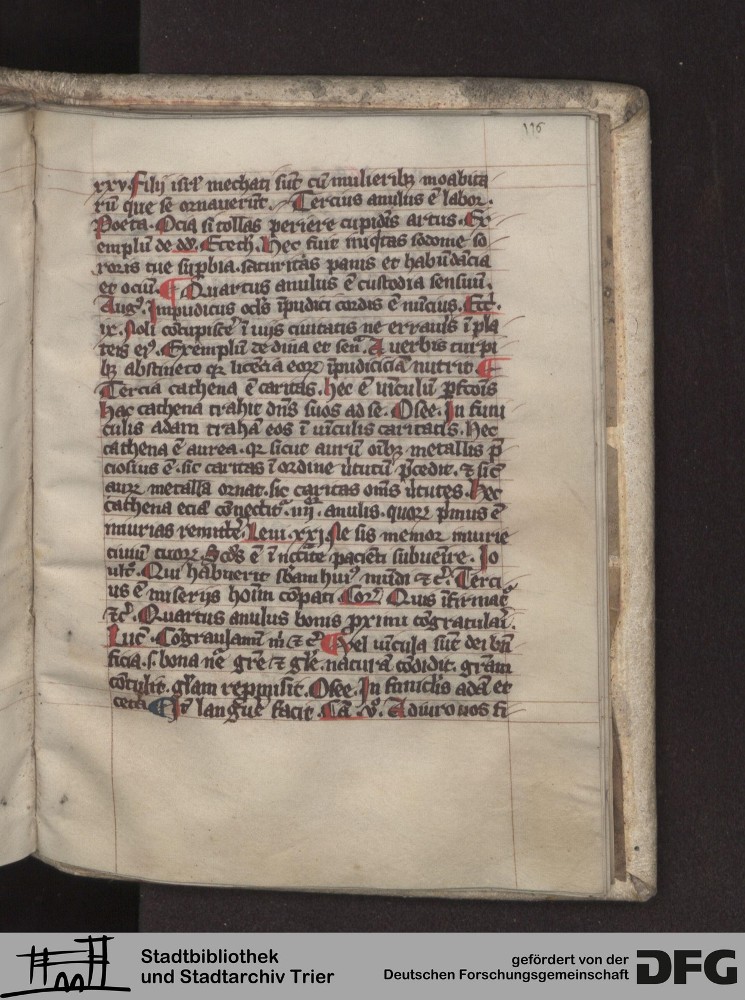 116
xxv. Filij isrł mechati sūt cū mulieribȝ moabita
rū que se ornauerūt. Tercius anulus ē labor.
Poeta. Ocia si tollas periere cupidis artus. Ex
emplū de dd. Ezech. Hec fuit iniqtas sodome so
roris tue supbia. saturitas panis et habūdācia
et ociū. ¶ Quartus anulus ē custodia sensuū.
Augꝰ. Impudicus oclꝰs īpudici cordis ē nūcius. Eccͥ.
ix. Noli cōcupisceͬ ī uijs ciuitatis ne erraueris ī pla
teis eiꝰ. Exemplū de dina et A uerbis turpi
bȝ abstineto qꝛ licēcia eoꝝ īpudiciciā nutrit ¶
Tercia cathena ē caritas. hec ē uīculū pfcōis
hac cathena trahit dn̄s suos ad se. Osee. In funi
culis adam trahā eos ī uīculis caritatis. Hec
cathena ē aurea. qꝛ sicut aurū oībȝ metallis p̄
ciosius ē. sic caritas ī ordine ututū p̄cedit. ⁊ sic̄
auꝝ metalla ornat. sic caritas om̄s ututes. Hec
cathena eciā cōnectitͬ. iiijͦ. anulis. quoꝝ pͥmus ē
iniurias remitteͬ. Leui. xxj Ne sis memor iniurie
ciuiū tuoꝝ. Scd̄s ē ī nccītate pacienti subuenire. Jo
Qui habuerit sbām huiꝰ mūdi ⁊ cͬ. Terci
us ē miserijs hoīm cōpati. Corͬ. Quis īfirmatͬ
⁊cͬ. Quartus anulus bonis primi cōgratulaͬi.
Lucͬ. Cōgratulamī m̄ ⁊ cͬ ¶ Vel uīcula sūt dei bn̄
ficia. s. bona nͤ grͤe ⁊ glͤe. naturā cōdidit. grām
cōtulit. glām repmisit. Osee. In funiclis adā et
cetera ¶ langue facit. Cā. vͦ. Adiuro uos fi
Stadtbibliothek
und Stadtarchiv Trier
gefördert von der
Deutschen Forschungsgemeinschaft
DFG